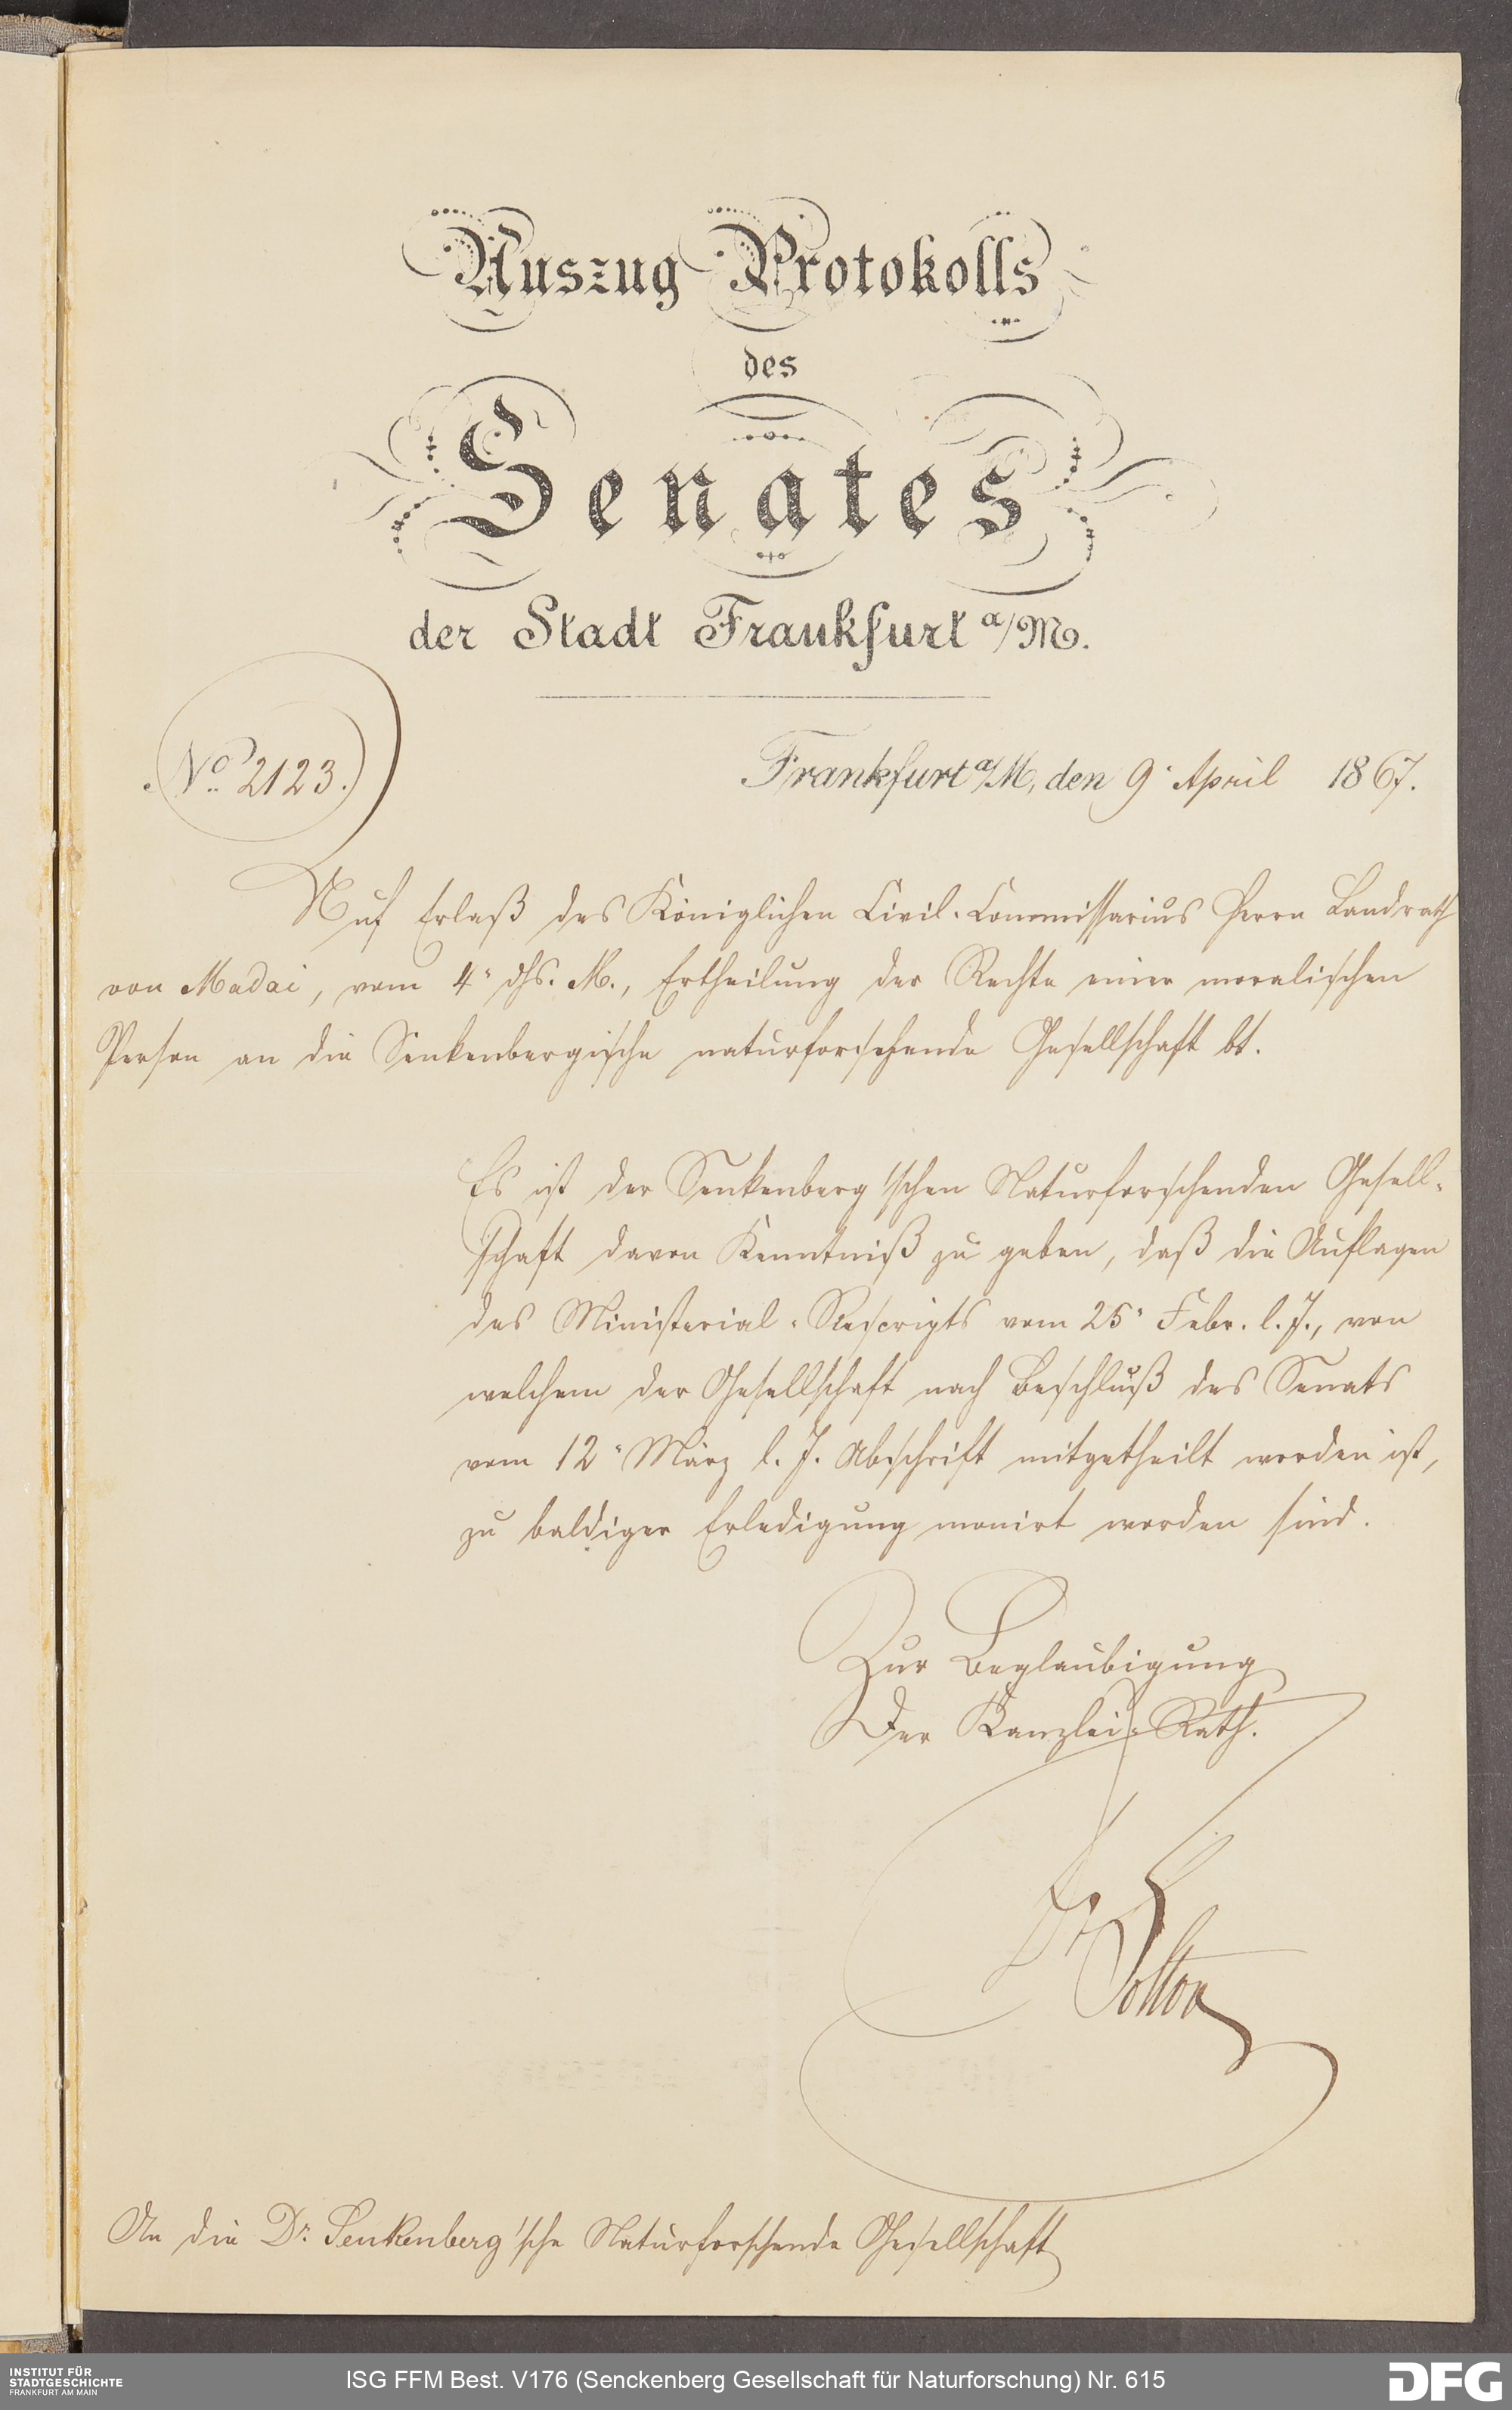 Auszug Protokolls
des
Senates
der Stadt Frankfurt a/M.
No. 2123.
Frankfurt a/M, den 9. April 1867.
Auf Erlaß des Königlichen Civil-Commissarius Herrn Landrath
von Madai, vom 4. dhs. M., Ertheilung der Rechte einer moralischen
Person an die Senkenbergische naturforschende Gesellschaft bt.
Es ist der Senkenberg'schen Naturforschenden Gesell-
schaft davon Kenntniß zu geben, daß die Auflagen
des Ministerial-Rescripts vom 25. Febr. l. J., von
welchem der Gesellschaft nach Beschluß des Senats
vom 12. März l. J. Abschrift mitgetheilt worden ist,
zu baldiger Erledigung monirt worden sind.
Zur Beglaubigung
Der Kanzlei-Rath.
Dr
An die Dr. Senkenberg'sche Naturforschende Gesellschaft
INSTITUT FÜR
STADTGESCHICHTE
FRANKFURT AM MAIN
ISG FFM Best. V176 (Senckenberg Gesellschaft für Naturforschung) Nr. 615
DFG